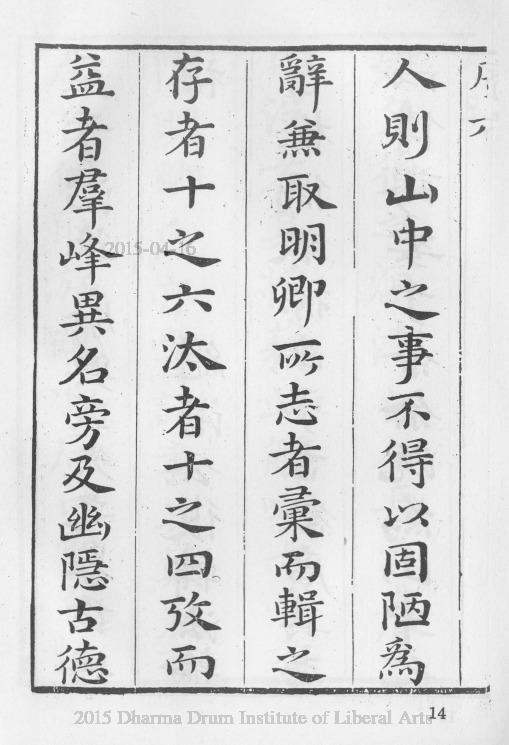 人則山中之事不得以固陋爲
辭兼取明卿所志者彙而輯之
存者十之六汰者十之四攷而
益者羣峰異名旁及幽隱古德
2015-04-16
14
2015 Dharma Drum Institute of Liberal Arts